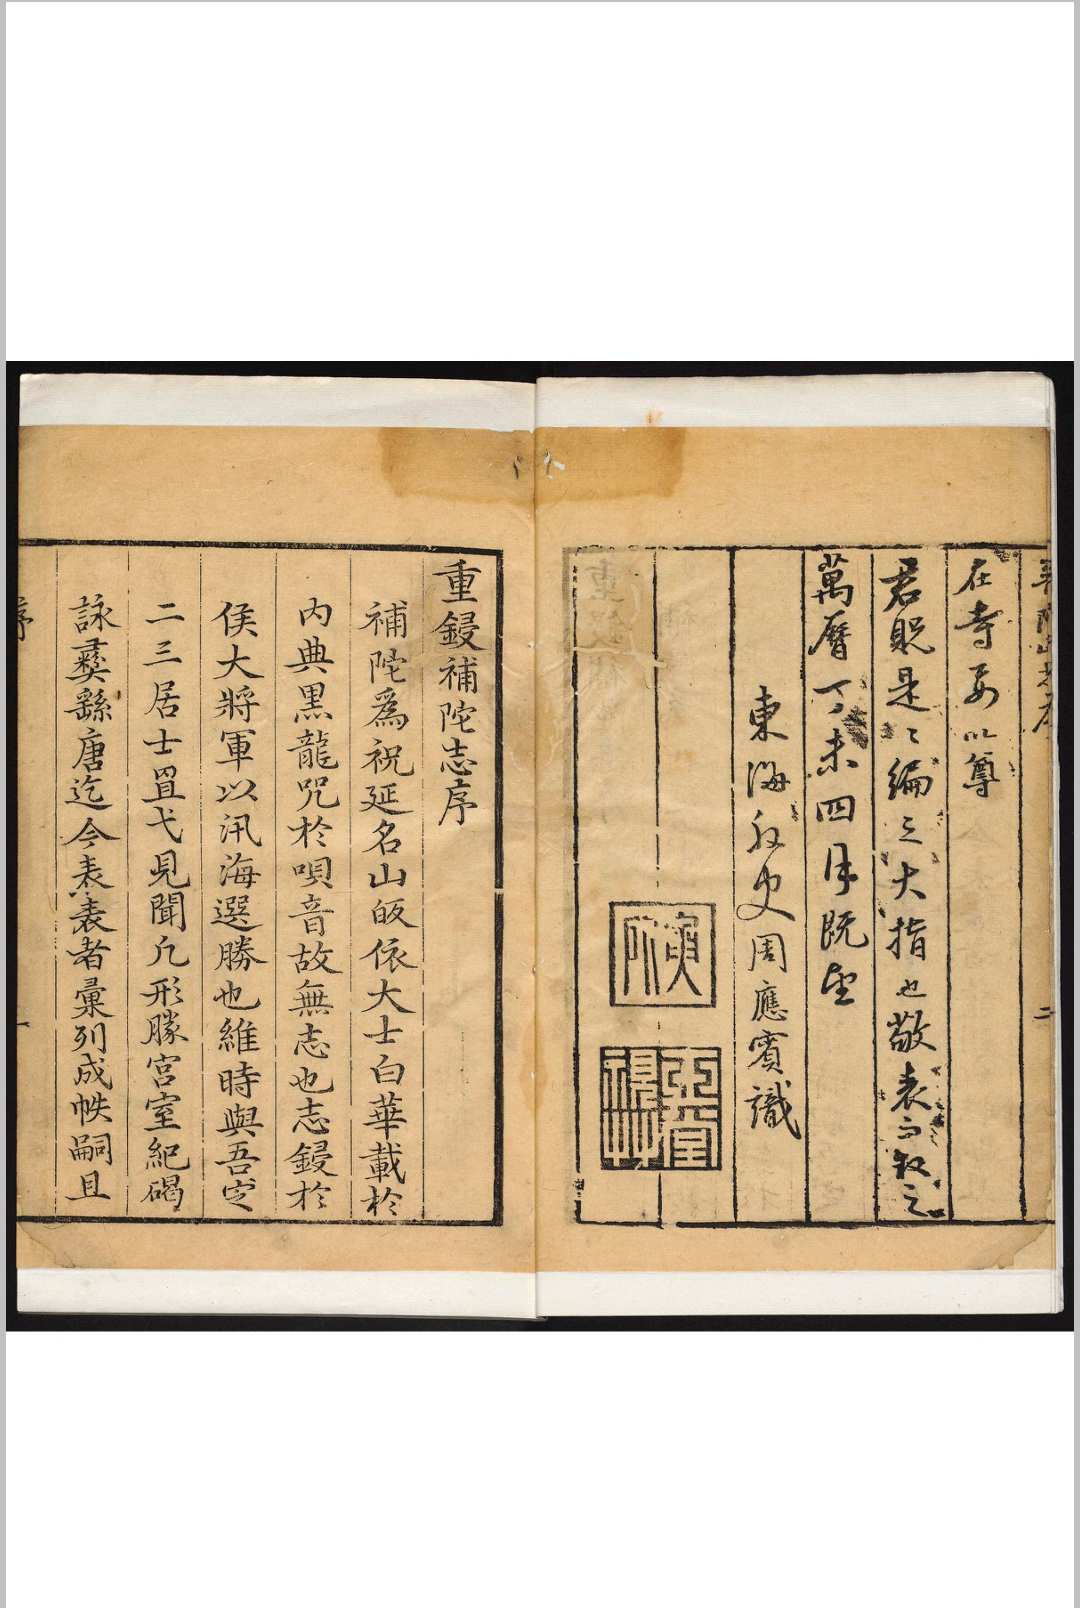 在寺要以尊
君貺是〻編之大指也敬表而叙之
萬曆丁未四月既望
東海外史周應賓識
二
重鋟補陀志序
補陀爲祝延名山皈依大士白華載於
內典黑龍咒於唄音故無志也志鋟於
侯大將軍以汛海選勝也維時與吾
二三居士罝弋見聞凡形勝宮室紀碣
詠彝繇唐迄今表表者彙列成帙嗣且
序
一